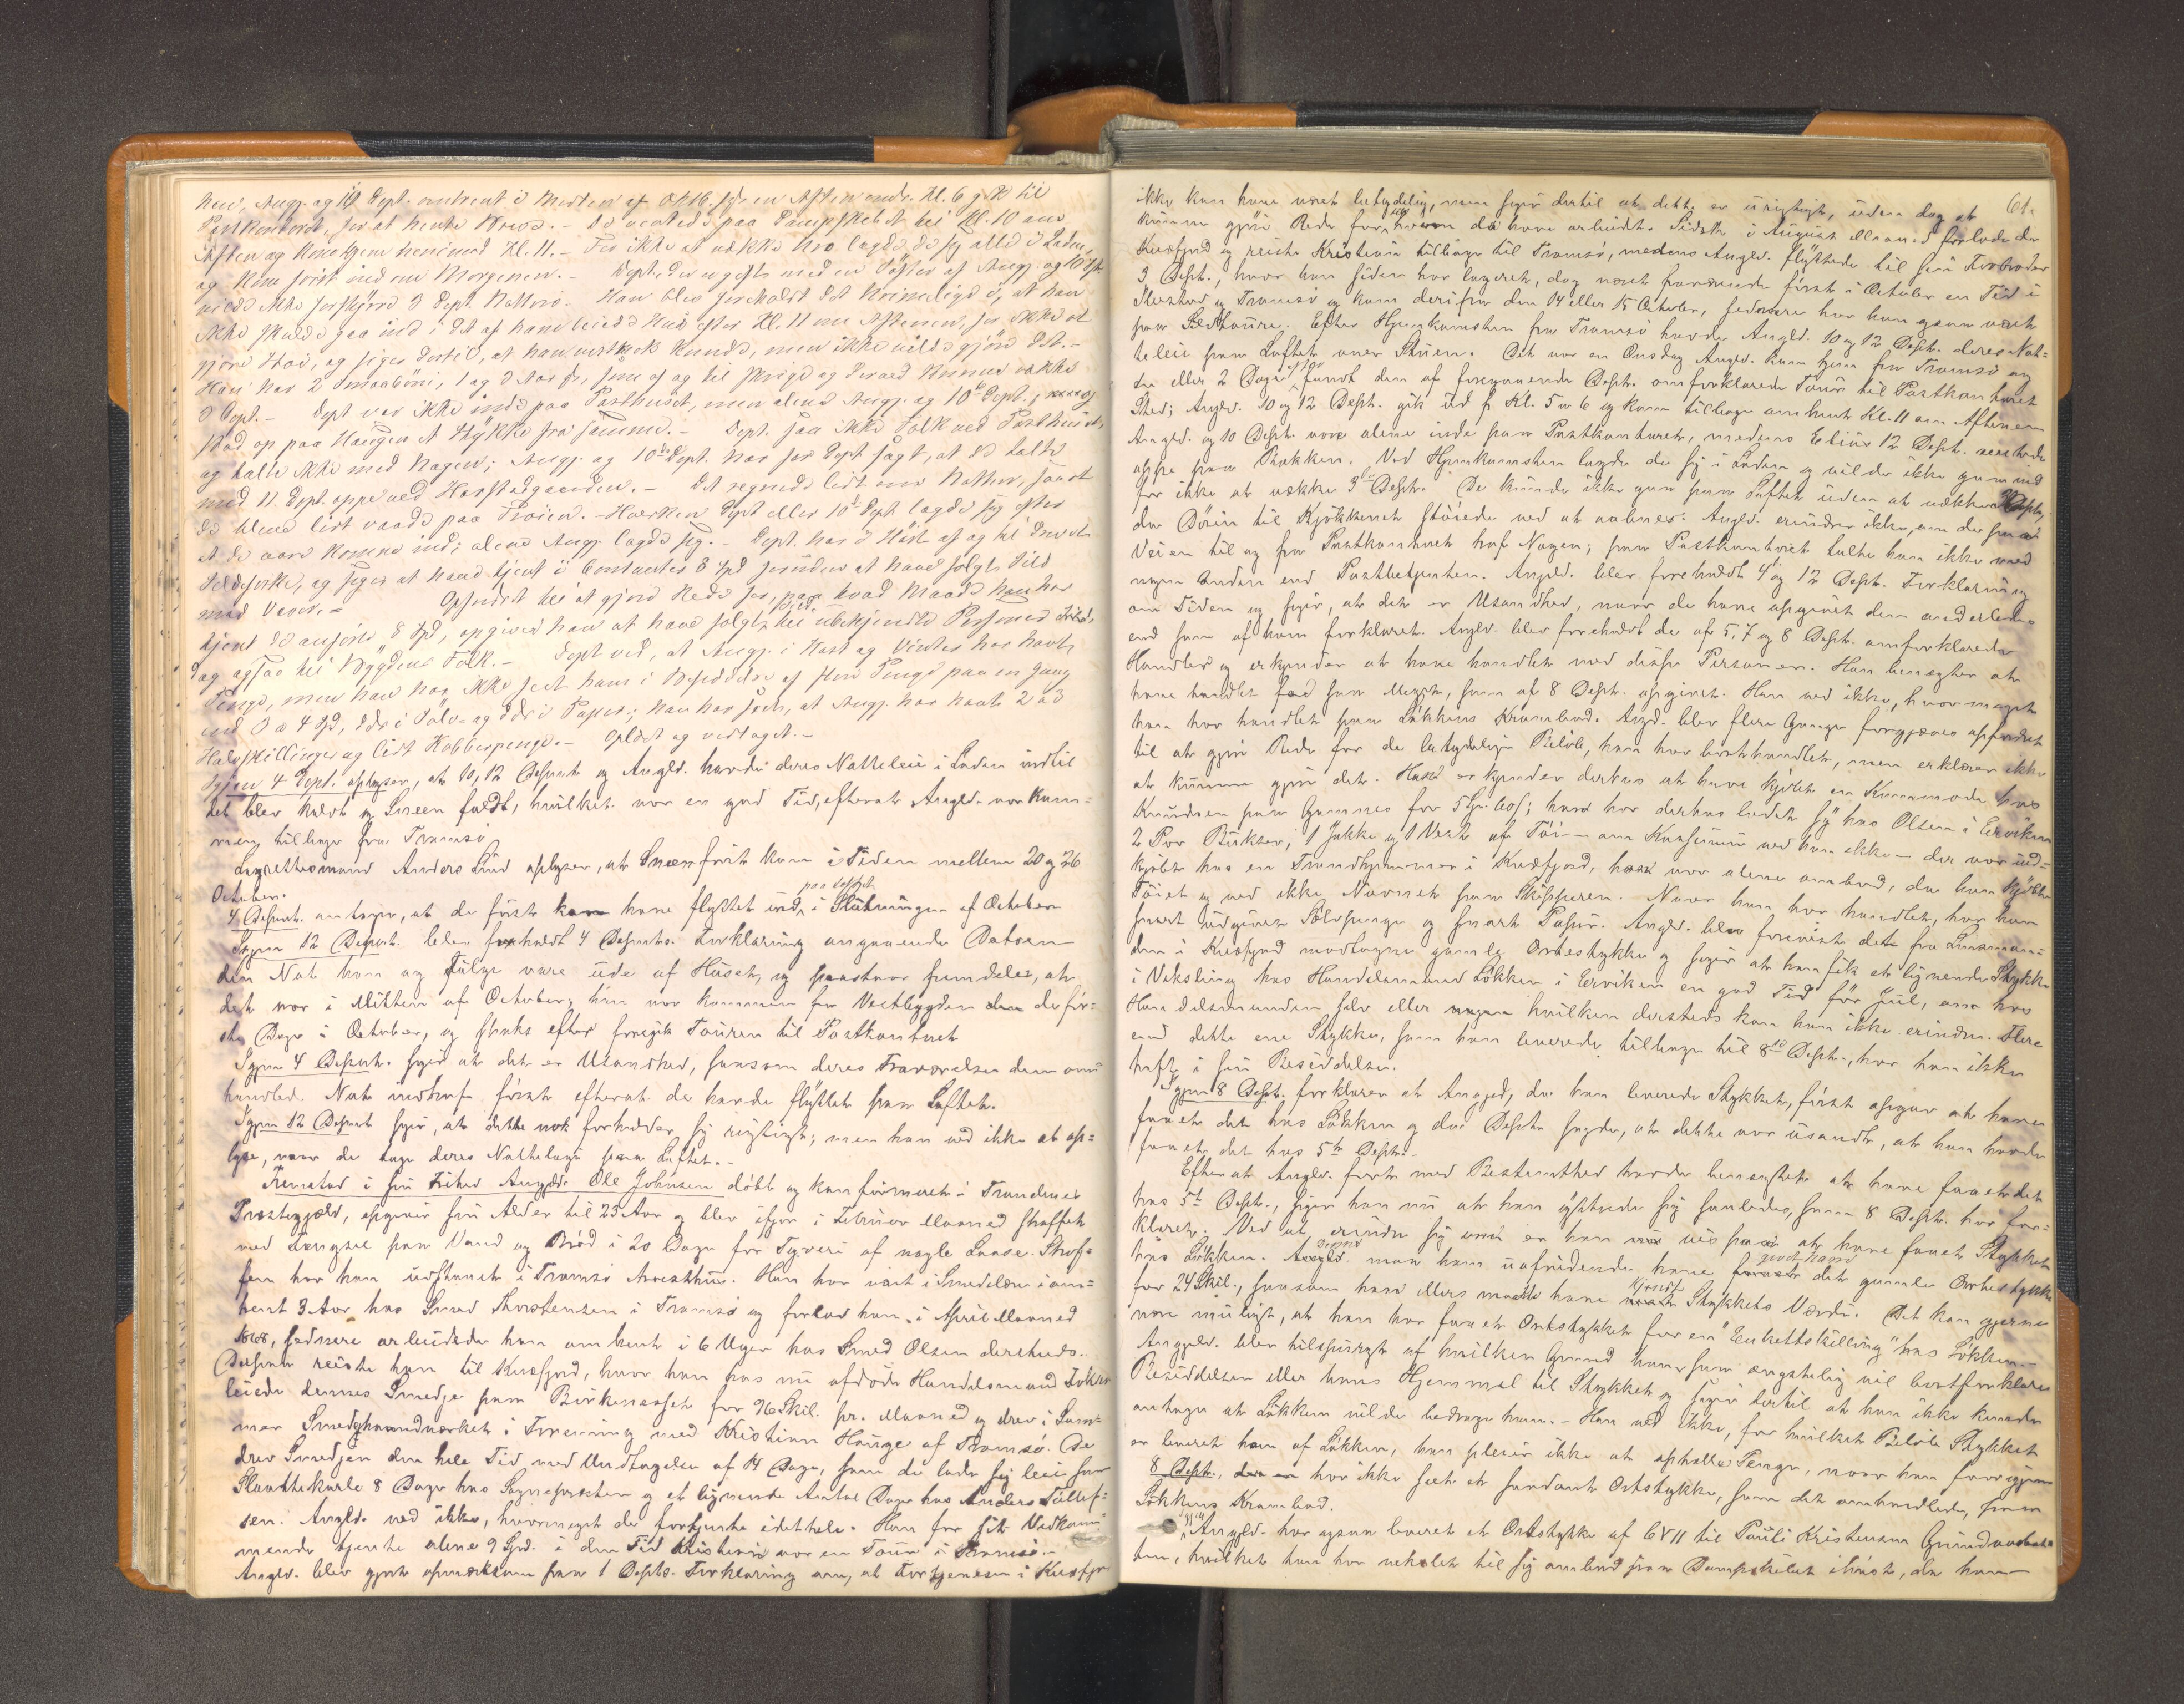 han, Angj. og 10 Dept. omtrent i Midten af Oktb. f. A. en Aften omtr. Kl. 6 gik til
Postkontoret, for at hente Breve. – De ventede paa Dampskibet til Kl. 10 om
Aften og kom hjem henimod Kl. 11. – For ikke at vække Bro lagde de sig alle i Laden,
og kom først ind om Morgenen. – Dept. der er gift med en Søster af Angj. og 10 Dpt.
vilde ikke forstyrre 3 Dept. Nattero. Han blev foreholdt det Urimelige i, at han
ikke skulde gaa ind i det af ham leiede Huus efter Kl. 11 om Aftenen, for ikke at
gjøre Støi, og siger dertil, at han vistnok kunde, men ikke vilde gjøre det. –
Han har 2 smaabørn, 1 og 2 Aar gl., som af og til skrige og derved kunne vække
3 Dept. – Dept. var ikke inde paa Posthuset, men alene Angj. og 10de Dept.; og
stod op paa Haugen et Stykke fra samme. – Dept. saa ikke Folk ved Posthuset,
og talte ikke med Nogen; Angj. og 10de Dept. har for Dept. sagt, at de talte
med 11 Dept. oppe ved Havstadgaarden. – Det regnede lidt om Natten, saa at
de bleve lidt vaade paa Trøien. – Hverken Dept. eller 10de Dept. lagde sig efter
at de vare komne ind; alene Angj. lagde sig. – Dept. har i Høst af og til drevet
Sildefiske, og siger at have tjent i Contanter 8 Spd foruden at have solgt Sild
mod Varer. – Opfordret til at gjøre Rede for, paa hvad Maade han har
tjent de anførte 8 Spd, opgiver han at have solgt Sild til ubekjendte Personer
og ogsaa til Bygdens Folk. – Dept. ved, at Angj. i Høst og Vinter har havt
Penge, men han har ikke seet ham i Besiddelse af flere Penge paa en Gang
end 3 a 4 Spd, i Sølv og i Papir; han har seet, at Angj. har havt 2 a 3
Halvskillinger og lidt Kobberpenge. – Oplæst og vedtaget. –
Igjen 4 Dept. oplyser, at 10, 12 Deponent og Angld. havde deres Natteleie i Laden indtil
det blev koldt og Sneen faldt, hvilket var en god Tid, efterat Angld. var kom-
men tilbage fra Tromsø
Lagrettesmand Anders Lind oplyser, at Sneen først kom i Tiden mellem 20 og 26
October.
4 Deponent antager, at de først have flyttet ind paa Loftet i Slutningen af October
Igjen 12 Deponent blev foreholdt 4 Deponts. Forklaring angaaende Datoen
den Nat han og Følge vare ude af Huset, og paastaar fremdeles, at
det var i Midten af October; han var kommen fra Vestbygden de før-
ste Dage i October, og straks efter foregik Touren til Postkontoret
Igjen 4 Deponent. siger at det er Usandhed, saasom deres Fraværelse den om-
handled. Nat indtraf først efterat de havde flyttet paa Loftet.
Igjen 12 Deponent siger, at dette nok forholder sig rigtigt; men han ved ikke at op-
lyse, naar de toge deres Natteleie paa Loftet. –
Fremstod i sin Frihed Angjældte Ole Johnsen døbt og konfirmeret i Trondenes
Præstegjæld, opgiver sin Alder til 25 Aar og blev ifjor i Februar Maaned straffet
med Fængsel paa Vand og Brød i 20 Dage for Tyveri af nogle Laase. Straf-
fen har han udstaaet i Tromsø Arresthuus. Han har været i Smedelære i om-
trent 3 Aar hos Smed Thorstensen i Tromsø og forlod ham i April Maaned
1868, sednere arbeidede han omtrent i 6 Uger hos Smed Olsen dersteds.
Derfra reiste han til Kvæfjord, hvor han hos nu afdøde Handelsmand
leiede dennes Smedje paa Borkenæsset for 96 Skil. pr. Maaned og drev i Som-
mer Smedehaandværket i Forening med Kristian Hauge af Tromsø. De
drev Smedjen den hele Tid, med Undtagelse af 14 Dage, som de lode sig leie som
Slaattekarle 8 Dage hos Sognepræsten og et lignende Antal Dage hos Anders Tollef-
sen. Angld. ved ikke, hvormeget de fortjente idethele. Han for sit Vedkom-
mende tjente alene 9 Spd. i den Tid Kristian var en Tour i Tromsø. –
Angld. blev gjort opmærksom paa 1 Depts. Forklaring om, at Fortjenesten i Kvæfjord
61.
ikke kan have været betydelig, men siger dertil at dette er urigtigt, uden dog at
kunne gjøre Rede for, hvem de have arbeidet. Sidst i August Maaned forlode de
Kvæfjord og reiste Kristian tilbage til Tromsø, medens Angld. flyttede til sin Forbroder
3 Dept., hvor han siden har logeret, dog været fraværende først i October en Tid i
Harstad og Tromsø og kom derifra den 14 eller 15 October, sednere har han ogsaa været
paa Sildtoure. Efter Hjemkomsten fra Tromsø havde Angld. 10 og 12 Dept. deres Nat-
teleie paa Loftet over Stuen. Det var en Onsdag Angld. kom hjem fra Tromsø og
en eller 2 Dage efter fandt den af foregaaende Dept. omforklarede Tour til Postkontoret
Sted; Angld. 10 og 12 Dept. gik ud fr Kl. 5 a 6 og kom tilbage omtrent Kl. 11 om Aftenen
Angld. og 10 Dept. vare alene inde paa Postkontoret, medens Elias 12 Dept. ventede
oppe paa Bakken. Ved Hjemkomsten lagde de sig i Laden og vilde ikke gaa ind
for ikke at vække 3die Dept. De kunde ikke gaa paa Loftet uden at vække 3 Dept.,
da Døren til Kjøkkenet støiede ved at aabnes. Angld. erindrer ikke, om de paa
Veien til og fra Postkontoret traf Nogen; paa Postkontoret talte han ikke med
nogen Anden end Postbetjenten. Angld. blev foreholdt 4 og 12 Dept. Forklaring
om Tiden og siger, at det er Usandhed, naar de have opgivet den anderledes
end som af ham forklaret. Angld. blev foreholdt de af 5, 7 og 8 Dept. omforklarede
Handler og erkjender at have handlet med disse Personer. Han benægter at
have handlet saa meget, som af 8 Dept. opgivet. Han ved ikke, hvormeget
han har handlet paa Løkkens Krambod. Angld. blev flere Gange forgjæves opfordret
til at gjøre Rede for de betydelige Beløb, han har borthandlet, men erklærer ikke
at kunne gjøre det. Han erkjender derhos at have kjøbt en Kommode hos
Knudsen paa Gamnes for 5 Spd.; han har derhos ladet sy hos Olsen i Erviken
2 Par Buxer, 1 Jakke og 1 Vest af Tøi – om Kulør ved han ikke – der var ind-
kjøbt hos en Trondhjemmer i Kvæfjord, han var alene ombord, da han kjøbte
Tøiet og ved ikke Navnet paa Skipperen. Naar han har handlet, har han
snart udgivet Sølvpenge og snart Papir. Angld. blev foreviist det fra Lensman-
den i Kvæfjord modtagne gamle Ortestykke og siger at han fik et lignende Stykke
i Veksling hos Handelsmand Løkken i Erviken en god Tid før Juul, om hos
Handelsmanden selv eller hvilken dersteds kan han ikke erindre. Flere
end dette ene Stykke, som han leverede tilbage til 8de Dept., har han ikke
havt i sin Besiddelse.
Igjen 8 Dept. forklarer at Angjd., da han leverede Stykket, først opgav at have
faaet det hos Løkken og da Depten sagde, at dette var usandt, at han havde
faaet det hos 5te Dept. –
Efterat Angld. først med Bestemthed havde benægtet at have faaet det
hos 5te Dept., siger han nu at han yttrede sig saaledes, som 8 Dept. har for-
klaret. Ved at erindre sig om er han nu vis paa at have faaet Stykket
hos Løkken. maa han uafvidende have det gamle Ortestykke
for 24 Skil., saasom han ellers maatte have kjendt Stykkets Værdi. Det kan gjerne
være muligt, at han har faaet Ortstykket for en "Enkeltskilling" hos Løkken. –
Angjeld. blev tilspurgt af hvilken Grund han saa ængstelig vil bortforklare
Besiddelsen eller hans Hjemmel til Stykket og siger dertil at han ikke kunde
antage at Løkken vilde bedrage ham. – Han ved ikke, for hvilket Beløb Stykket
er leveret ham af Løkken, han pleier ikke at optælle Penge, naar han faar igjen
8 Dept., har ikke seet et saadant Ortstykke, som det omhandlede, paa
Løkkens Krambod.
Angld. har ogsaa leveret et Ortstykke af CVII til Pauli Kristensen
ten, hvilket han har vekslet til sig ombord paa Dampskibet ihøst, da han